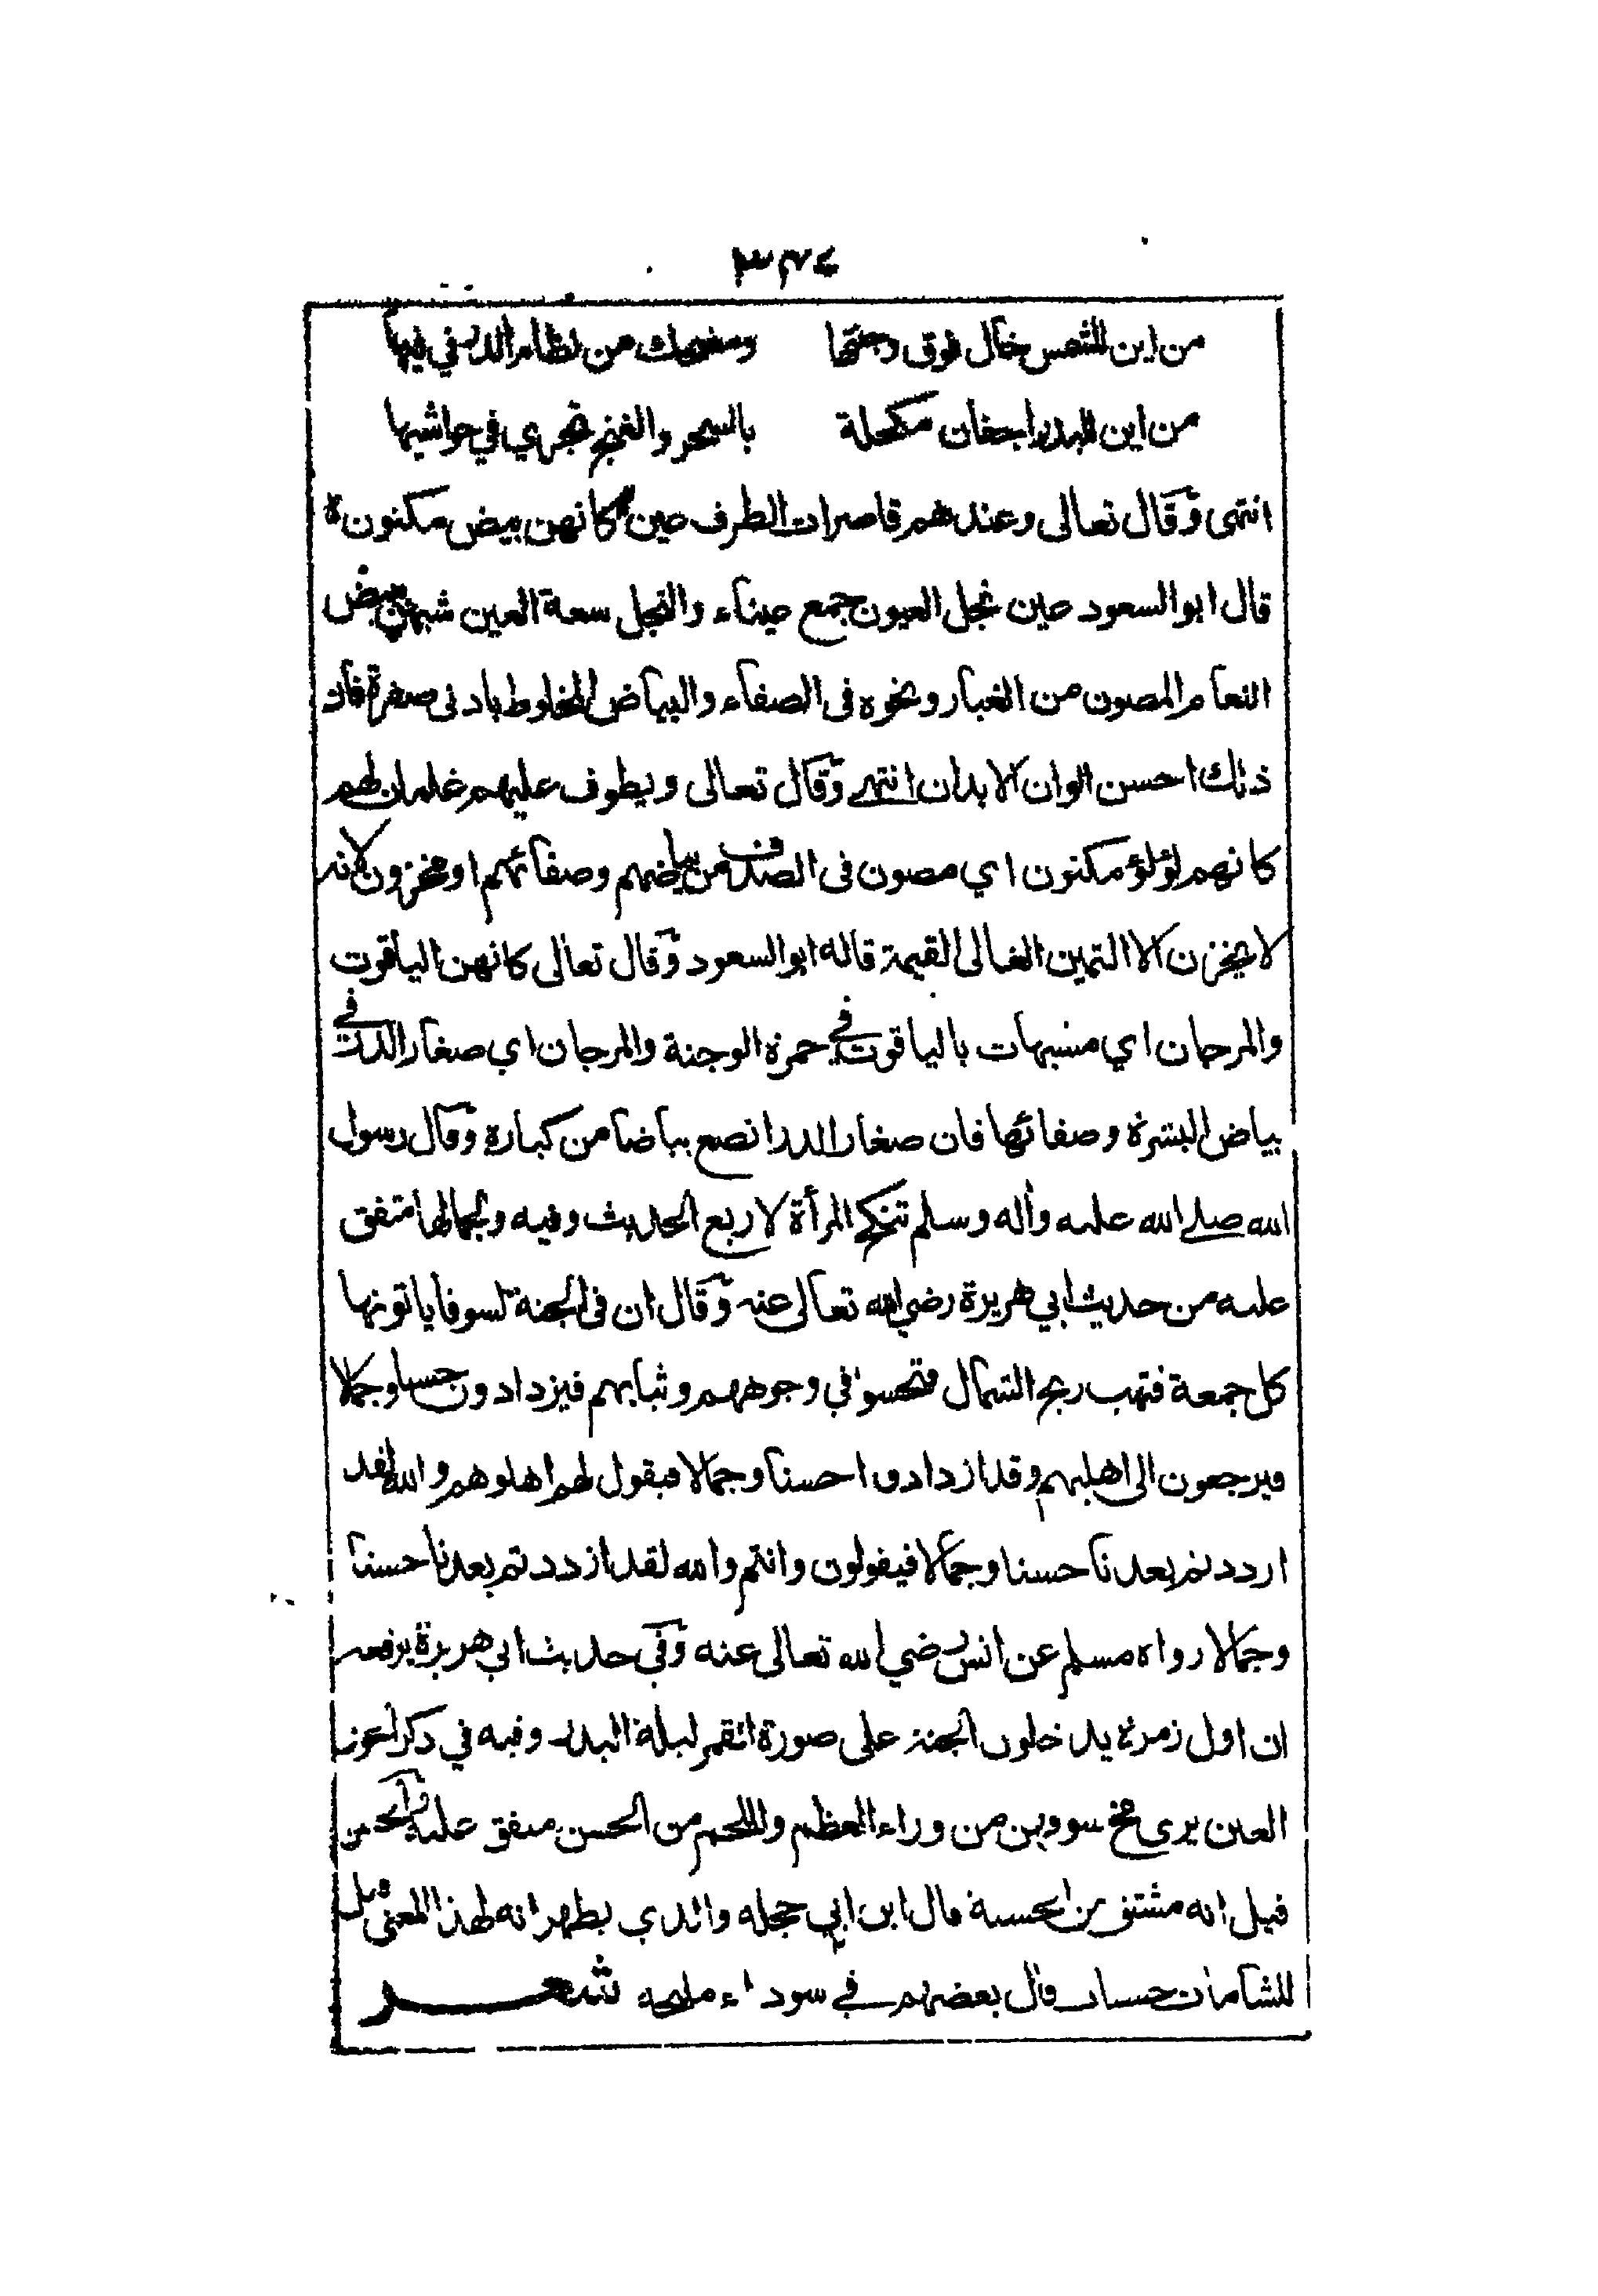 ٣٧٤
من اين للشمس خال فوق وجنتها ومضحك من نظام الدر في فيها
من اين للبدر اجفان مكحلة بالسحر والغنج تجري في حواشيها
انتهى وقال تعالى وعندهم قاصرات الطرف عين كانهن بيض مكنون ة
قال ابو السعود عين نجل العيون جمع عيناء والنجل سعة العين شبهن ببيض
النعام المصون من الغبار ونحوه فى الصفاء والبياض المخلوط بادنى صفرة فان
ذلك احسن الوان الابدان انتهى وقال تعالى ويطوف عليهم غلمان لهم
كانهم لؤلؤ مكنون اي مصون فى الصدف من بياضهم وصفائهم او مخزون لانه
لا يخزن الا الثمين الغالى القيمة قاله ابو السعود وقال تعالى كانهن الياقوت
والمرجان اي مشبهات بالياقوت في حمرة الوجنة والمرجان اي صغار الدر في
بياض البشرة وصفائها فان صغار الدر انصع بياضا من كباره وقال رسول
الله صلى الله عليه وأله وسلم تنكح المرأة لاربع الحديث وفيه ولجمالها متفق
عليه من حديث ابي هريرة رضي الله تعالى عنه وقال ان فى الجنة لسوفا ياتونها
كل جمعة فتهب ريح الشمال فتحسوا في وجوههم وثيابهم فيزدادون حسنا وجمالا
فيرجعون الى اهليهم وقد ازدادوا حسنا وجمالا فيقول لهم اهلوهم والله لقد
ازددتم بعدنا حسنا وجمالا فيقولون وانتم والله لقد ازددتم بعدنا حسنا
وجمالا رواه مسلم عن انس رضي الله تعالى عنه وفي حديث ابي هريرة يرفعه
ان اول زمرة يدخلون الجنة على صورة القمر ليلة البدر وفيه في ذكر
العين يرى مخ سووبهن من وراء العظم واللحم من الحسن متفق عليه والحسن
قيل انه مشتق من الحسنة قال ابن ابي حجله والذي يظهر انه لهذا المعنى قيل
للشامات حسنات قال بعضهم في سوداء مليحه شعر